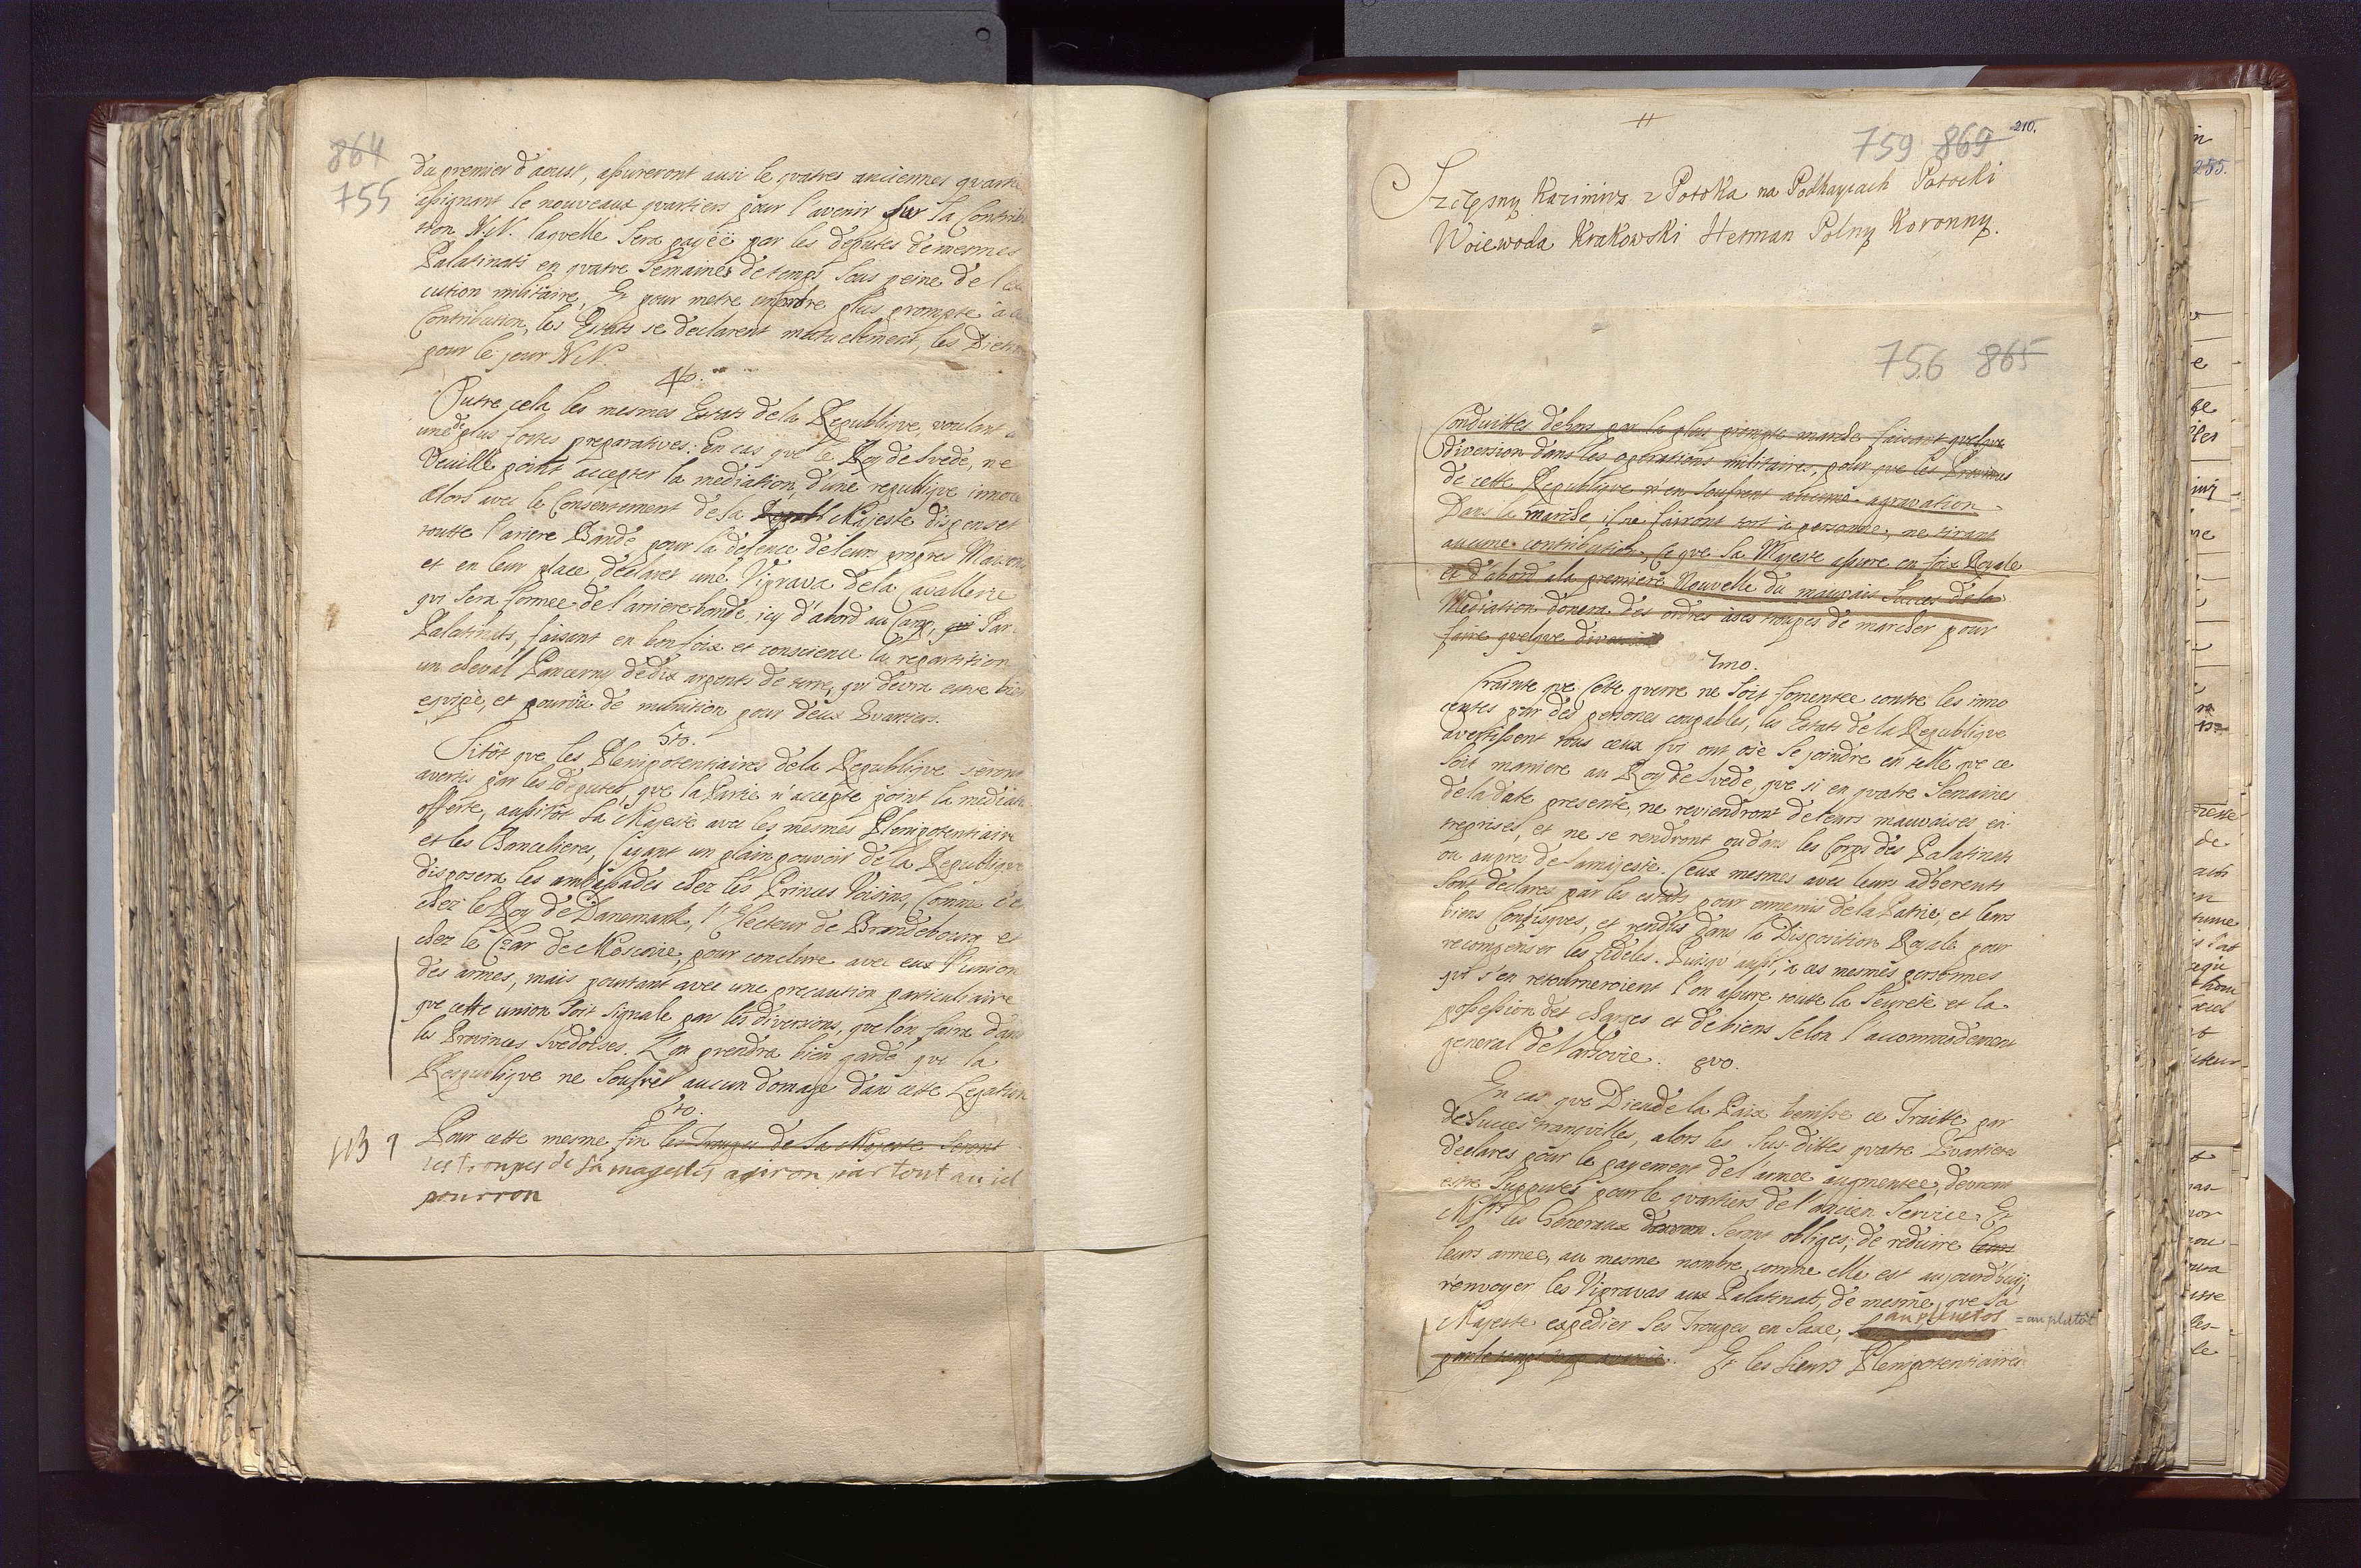 864
755
du premier d'aoust, assureront ausi le quatres anciennes quart
assignant le nouveaux quartiers pour l'avenir sur la Contrib
tion N.N. laquelle sera payéë par les députes demesmes
Palatinats en quatre Semaines de temps sous peine de l'ex
cution militaire, Et pour metre un ordre plus prompte à
Contribution, les Estats se declarent mutuelement, les Diet
pour le jour N.N.
4to.
Outre cela les mesmes Estats dela Republique, voulant
une de plus fortes preparatives: En cas que le Roy de Svede, ne
Veuille point accepter la mediation, d'une republique innoce
alors avec le Consentement de sa Majeste dispenser
toutte l'ariere Bande pour la defence de leurs propres Maison
et en leur place declarer une Viprava dela Cavallerie
qui sera formee de l'arriere bande, icy d'abord au Camp, Par
Palatinats, faisent en bon foix et conscience la repartition
un cheval Pancerny de dix argents de terre, qui devra estre bien
equipé, et pourvû de munition pour deux Quartiers.
5to.
Sitôt que les Plenipotentiaires dela Republique seront
avertis par les députes, que la Partie n'accepte point la mediat
offerte, aussitôt Sa Majesté avec les mesmes Plenipotentiaire
et les Chancelieres, (ayant un plain pouvoir de la Republique
disposera les ambassades chez les Princes Voisins, Comme
chez le Roy de Danemark, l'Electeur de Brandebourg et
chez le Czar de Moscovie, pour conclure avec eux l'union
des armes, mais pourtant avec une precaution particuliaire
que cette union soit signale par les diversions, que l'on faira dans
les Provinces Svedoises. L'on prendra bien garde que la
Respublique ne soufret aucun domage dans cette Legation
6to.
Pour cette mesme fin les Troupes de Sa Majeste seront
les troupes de sa magestes agiron par tout au il
pourron
#
759 869
210.
Szczęsny Kazimirz z Potoka na Podhaycach Potocki
Woiewoda Krakowski Hetman Polny Koronny.
756 865
Conduittes dehors par la plus prompte marche faisant quelque
diversion dans les operations militaires, pour que les Provinces
de cette Republique n'en soufrent aucune agravation
Dans la marche, il ne fairont tort à personne, ne tirant
aucune contribution, Ce que Sa Majeste assure en foix Royale
et d'abord ala premiere Nouvelle du mauvais Succes dela
Mediation donera des ordres à ses troupes de marcher pour
faire quelque diversion
7mo.
Crainte que Cette guerre ne soit fomentee contre les inno
centes par des personnes coupables, les Estats dela Republique
avertissent tous ceux qui ont osé se joindre en telle que ce
soit maniere au Roy de Svede, que si en quatre Semaines
dela date presente, ne reviendront de leurs mauvaises en
treprises, et ne se rendront ou dans les Corps des Palatinats
ou aupres de Samajesté. Ceux mesmes avec leurs adherents
sont declares par les estats pour ennemis dela Patrie, et leurs
biens Confisques, et rendus dans la Disposition Royale pour
recompenser les fideles. Puisqu'aussi, à ces mesmes personnes
qui s'en retourneroient l'on assure toutte la Seureté et la
possession des charges et de biens selon l'accommodement
general de Varsovie. 8vo.
En cas que Dieu de la Paix benisse ce Traitte par
des Succes tranquilles, alors les Sus-dittes quatre Quartiers
declares pour le payement de l'armee augmentee, devront
estre Supputes pour le quartiers de l'ancien Service. Et
Mrs les Generaux seront obliges, de reduire leurs
leurs armee, au mesme nombre, comme elle est aujourd'huy,
renvoyer les Vipravas aux Palatinats, de mesme, que Sa
Majeste expedier ses Troupes en Saxe, au plustos =au plutôt
Et les Sieurs Plenipotentiaires